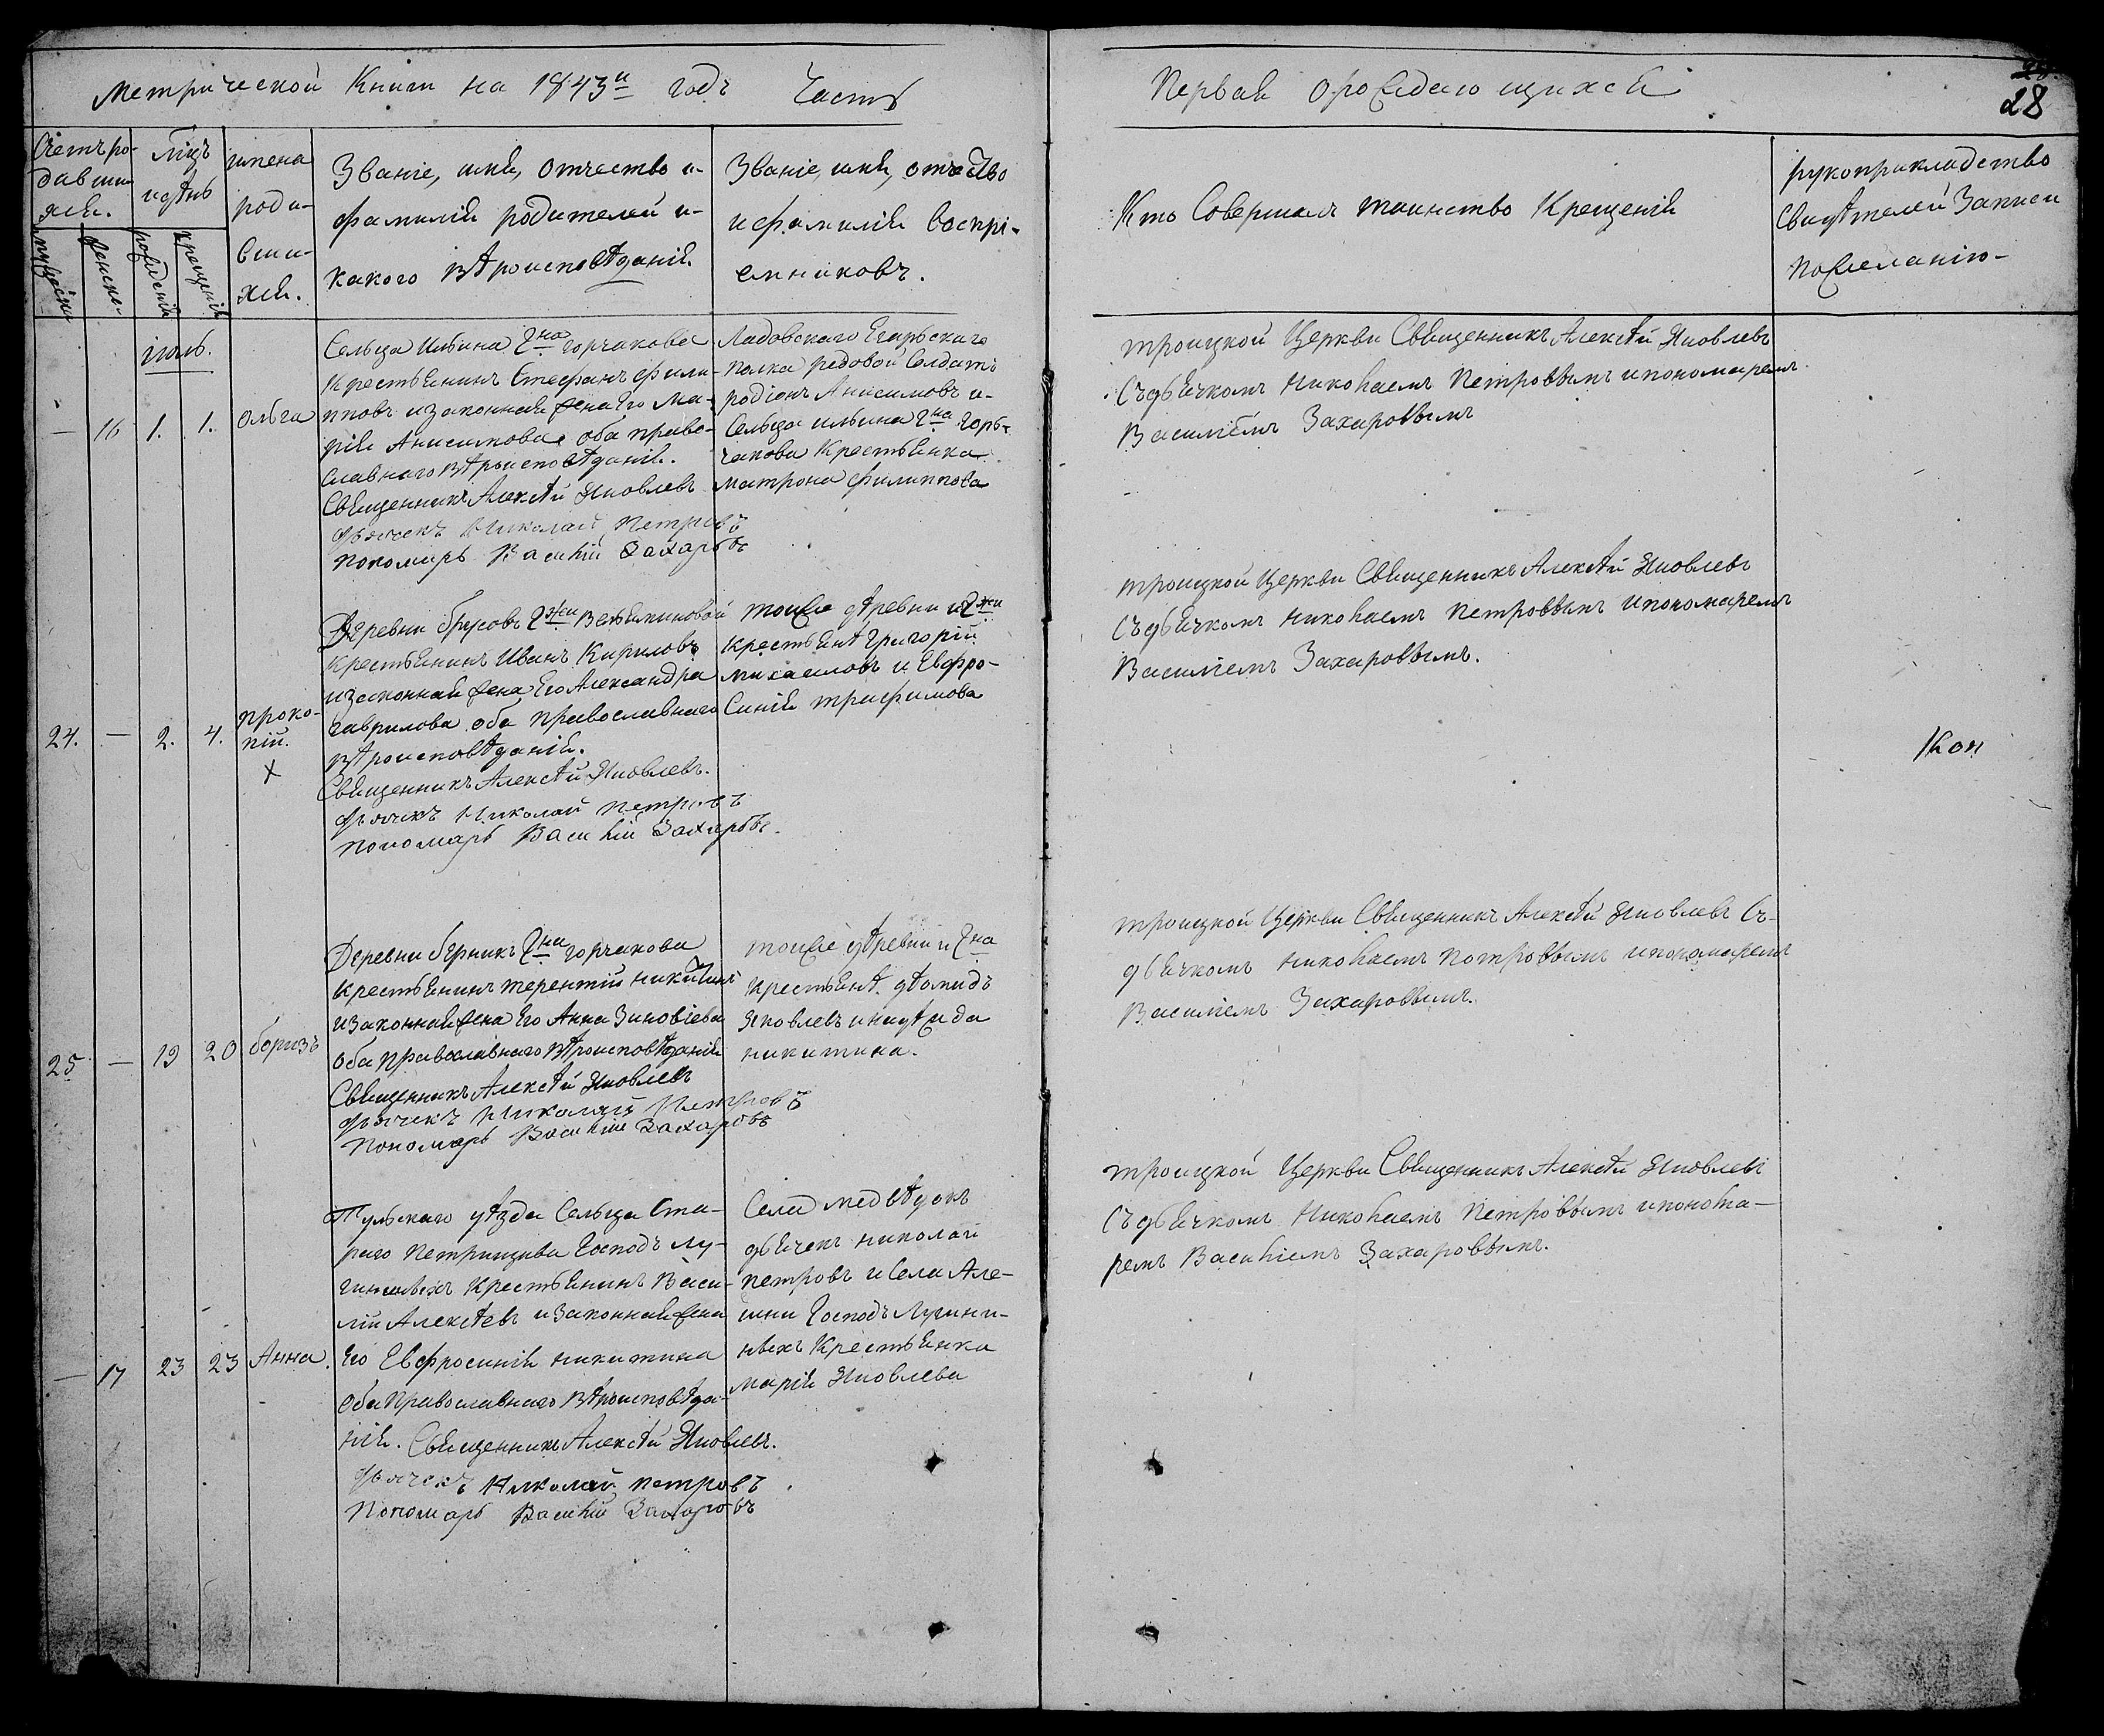 Метрической Книги на 1843й годъ Часть
Первая о рождающихся
28
Счетъ ро-
дивших
хся.
мужеска
женска.
Мцъ
и день
рождения
крещения
имена
роди-
вши-
хся.
Званіе, имя, отчество и
фамилія родителей и
какого вѣроисповѣданія
Званіе, имя, отчество
и фамилія воспрі-
емниковъ.
Кто Совершалъ таинство Крещенія
рукоприкладство
Свидѣтелей Записи
по Желанію
іюль.
— 16 1. 1. Ольга
Сельца Ильина Гна Горчакова
Крестьянинъ Стефанъ Фили-
пповъ и законная жена Его Ма-
рія Анисимова оба право-
славнаго вѣроисповѣданія.
Священникъ Алексѣй Яковлевъ
Дьячекъ Николай Петровъ
Пономарь Василій Захаровъ
Ладовскаго Егарьскаго
Полка рядовой Солдатъ
родіонъ Анисимовъ и
Сельца ильина Гна Горь-
чакова Крестьянка
матрона филиппова
троицкой Церкви Священникъ Алексѣй Яковлевъ
Съ дьячкомъ Николаемъ Петровымъ и пономаремъ
Василіемъ Захаровымъ
24. — 2. 4. проко-
пій.
х
Деревни брусовъ Гжи Вельяминовой
крестьянинъ Иванъ Кириловъ
и законная жена Его Александра
Гаврилова оба православнаго
вѣроисповѣданія.
Священникъ Алексѣй Яковлевъ.
Дьячекъ Николай петровъ
пономарь Василій Захаровъ.
тойже дѣревни и Гжи
крестьянѣ Григорій
михаиловъ и Евфро-
синія трифимова
троицкой Церкви Священникъ Алексѣй Яковлевъ
Съ дьячкомъ Николаемъ Петровымъ и пономаремъ
Василіемъ Захаровымъ.
Кон
25 — 19 20 боризъ
Деревни берникъ Гна Горчакова
крестьянинъ терентій никитинъ
и законная жена Его Анна Зиновіева
Оба православнаго вѣроисповѣданія
Священникъ Алексѣй Яковлевъ
Дьячекъ Николай Петровъ
Пономарь Василій Захаровъ
тойже дѣревни и Гна
крестьянѣ дѣомидъ
Яковлевъ и надѣжда
никитина.
троицкой Церкви Священникъ Алексѣй Яковлевъ Съ
дьячкомъ Николаемъ Петровымъ и пономаремъ
Василіемъ Захаровымъ.
— 17 23 23 Анна.
Тульскаго уѣзда Сельца Ста-
раго Петрищева Господъ Лу-
гининыхъ Крестьянинъ Васи-
лій Алексѣевъ и Законная жена
Его Евфросинія никитина
Оба Православнаго вѣроисповѣда-
нія. Священникъ Алексѣй Яковлевъ.
Дьячекъ Николай петровъ
Пономарь Василій Захаровъ
Села медвѣдокъ
дьячекъ николай
петровъ и Села Але-
шни Господъ Лугини-
ныхъ Крестьянка
марія Яковлева
троицкой Церкви Священникъ Алексѣй Яковлевъ
Съ дьячкомъ Николаемъ Петровымъ и понома-
ремъ Василіемъ Захаровымъ.